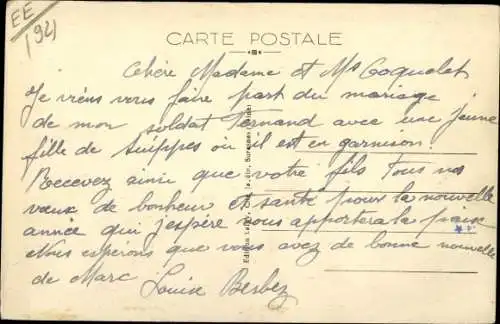 EE
1921
CARTE POSTALE
Chère Madame et Mr Coquelet
Je viens vous faire part du mariage
de mon soldat Fernand avec une jeune
fille de Suippes où il est en garnison.
Recevez ainsi que votre fils Tous nos
vœux de bonheur et santé pour la nouvelle
année qui j'espère nous apportera la paix
Nous espérons que vous avez de bonne nouvelle
de Marc Louise Berbez